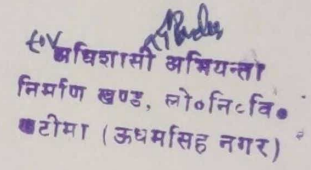 for
अधिशासी अभियन्ता
निर्माण खण्ड, लो०नि०वि०
खटीमा (ऊधमसिंह नगर)